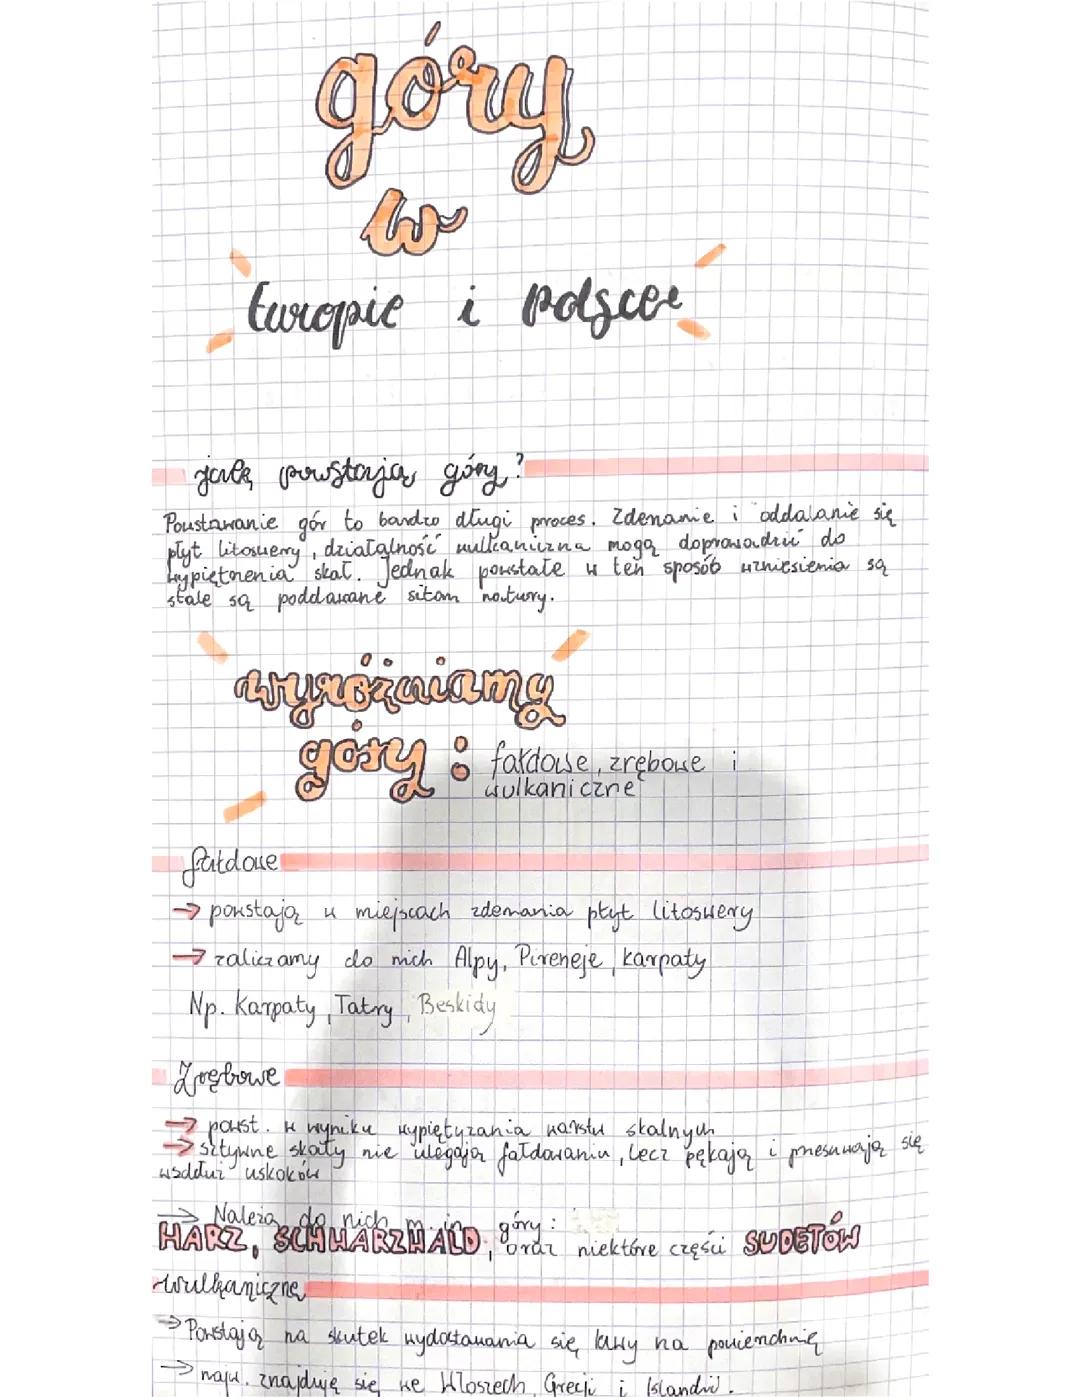 góry
w
Europie i Polsce
jak powstają góry?
Powstawanie gór to bardzo długi proces. Zderzanie i oddalanie się
płyt litosfery, działalność wulkaniczna mogą doprowadzić do
wypiętrzenia skał. Jednak powstałe w ten sposób wzniesienia są
stale są poddawane siłom natury.
wyróżniamy
góry: fałdowe, zrębowe i
wulkaniczne
fałdowe
→ powstają w miejscach zderzania płyt litosfery
→ zaliczamy do nich Alpy, Pireneje, Karpaty
Np. Karpaty, Tatry, Beskidy
Zrębowe
→ powst. w wyniku wypiętrzania warstw skalnych
→ sztywne skały nie ulegają fałdowaniu, lecz pękają i przesuwają się
wzdłuż uskoków
→ Należą do nich m.in. góry:
HARZ, SCHWARZWALD, oraz niektóre części SUDETÓW
wulkaniczne
→ Powstają na skutek wydostawania się lawy na powierzchnię
→ najw. znajdują się we Włoszech, Grecji i Islandii.